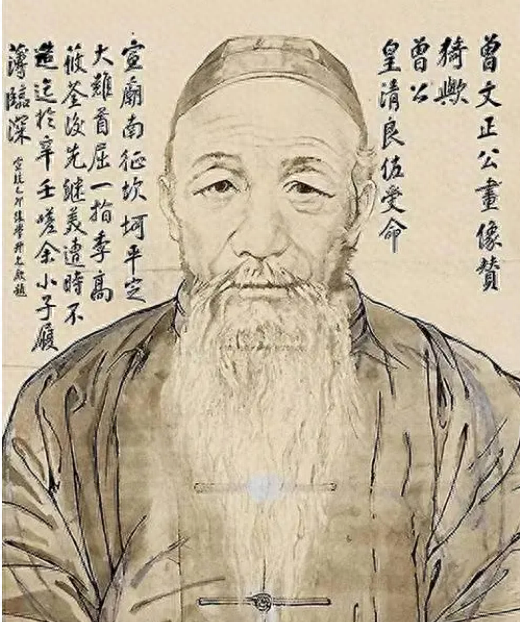 曾文正公畫像贊
猗歟
曾公
皇清良佐受命
宣廟南征坎坷平定
大難首屈一指季高
筱荃後先繼美遭時不
造迄於辛壬嗟余小子履
薄臨深